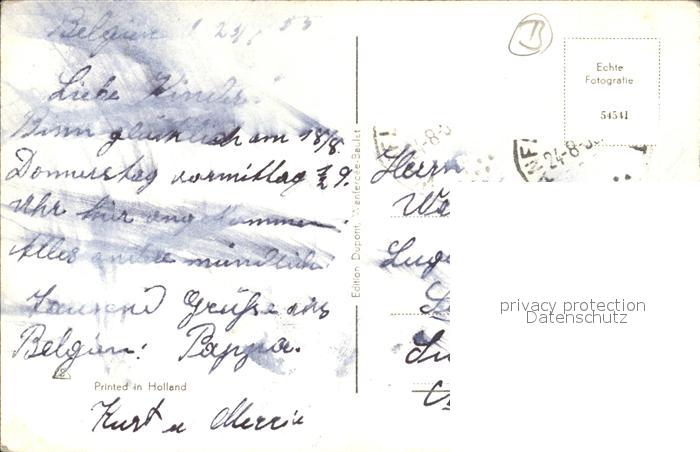 Belgien 23/8 53
Liebe Kinder!
Binn glücklich am 18/8.
Donnerstag vormittag ½ 9.
Uhr hier angekommen.
Alles andre mündlich
Tausend Grüße aus
Belgien: Pappa.
Printed in Holland
Kurt u
Edition Dupont, Wanfercée-Baulet
Echte
Fotografie
54541
24-8-5
Herrn
We
privacy protection
Datenschutz